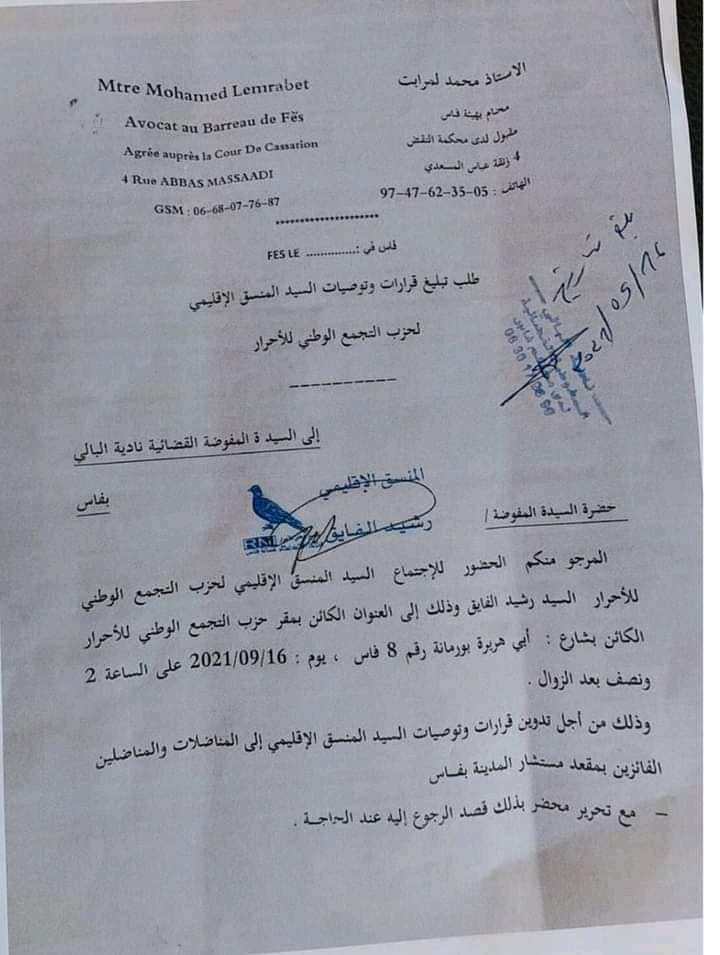 Mtre Mohamed Lemrabet
Avocat au Barreau de Fĕs
Agrée auprès la Cour De Cassation
4 Rue ABBAS MASSAADI
GSM : 06-68-07-76-87
الاستاذ محمد لمرابت
محام بهيئة فاس
مقبول لدى محكمة النقض
4 زنقة عباس المسعدي
الهاتف : 05-35-62-47-97
*********************
FES LE .............. : فاس في
طلب تبليغ قرارات وتوصيات السيد المنسق الإقليمي
لحزب التجمع الوطني للأحرار
----------
إلى السيد ة المفوضة القضائية نادية البالي
بفاس
المنسق الإقليمي
رشيد الفايق
RNI
حضرة السيدة المفوضة /
المرجو منكم الحضور للإجتماع السيد المنسق الإقليمي لحزب التجمع الوطني
للأحرار السيد رشيد الفايق وذلك إلى العنوان الكائن بمقر حزب التجمع الوطني للأحرار
الكائن بشارع : أبي هريرة بورمانة رقم 8 فاس ، يوم : 2021/09/16 على الساعة 2
ونصف بعد الزوال .
وذلك من أجل تدوين قرارات وتوصيات السيد المنسق الإقليمي إلى المناضلات والمناضلين
الفائزين بمقعد مستشار المدينة بفاس
– مع تحرير محضر بذلك قصد الرجوع إليه عند الحاجة .